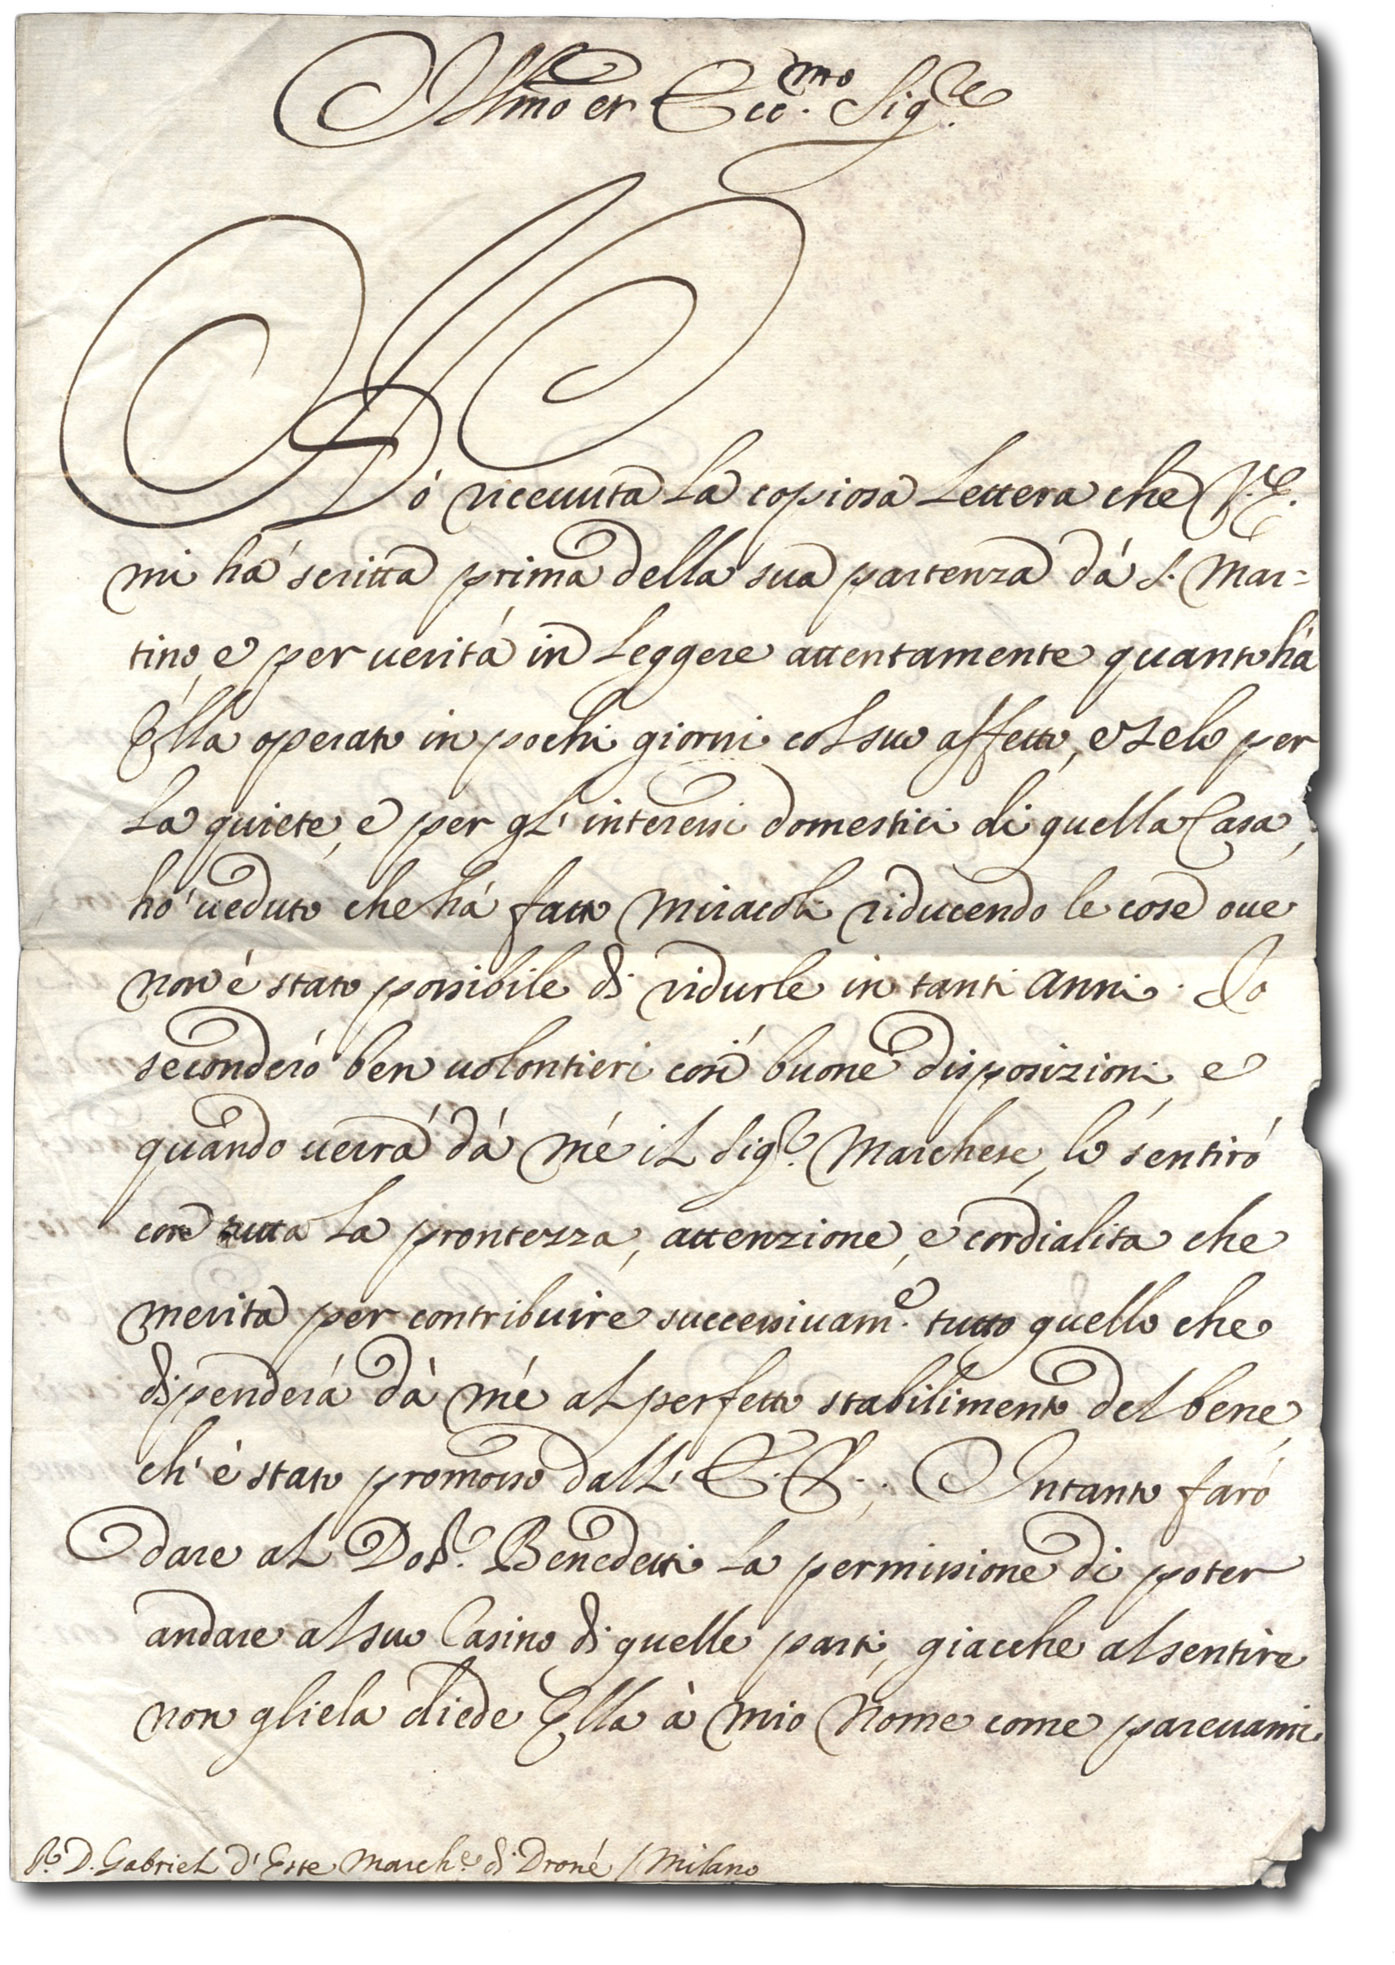 Illmo et Ecc.mo Sig.re
Hó riceuuta la copiosa Lettera che V.E.
mi há scritta prima della sua partenza dá S. Mar=
tino, e per ueritá in leggere attentamente quanto há
Ella operato in pochi giorni col suo affetto, e zelo per
la quiete, e per gl' interessi domestici di quella Casa,
hó ueduto che há fatto miracoli riducendo le cose oue
non é stato possibile di ridurle in tanti anni. Io
seconderó ben uolontieri cosí buone disposizioni, e
quando uerrá dá mé il Sig.r Marchese, lo sentiró
con tutta la prontezza, attenzione, e cordialita che
merita per contribuire successiuam.e tutto quello che
dipenderá dà mé al perfetto stabilimento del bene,
ch' é stato promosso dall' E.V.; Intanto faró
dare al Dot.r Benedetti la permissione di poter
andare al suo Casino di quelle parti, giacche al sentire
non gliela diede Ella à mio nome come pareuami
S.r D. Gabriel d' Este March.e di Droné / Milano